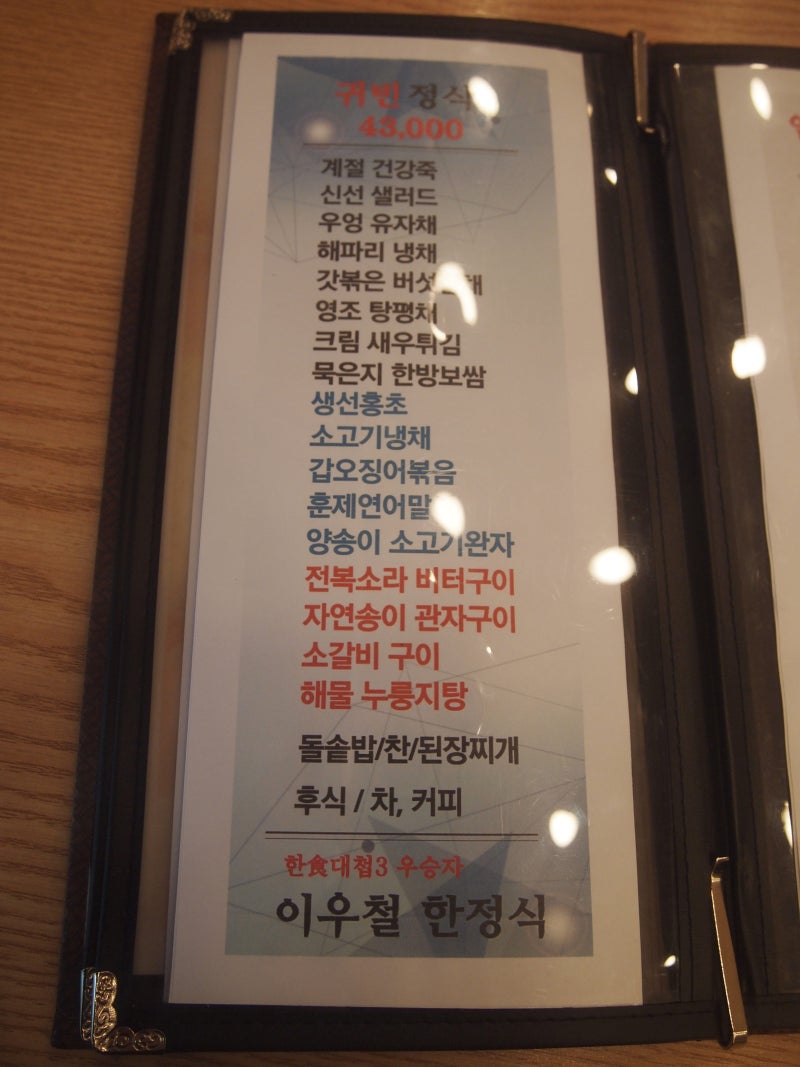 귀빈 정식
43,000
계절 건강죽
신선 샐러드
우엉 유자채
해파리 냉채
갓볶은
영조 탕평채
크림 새우튀김
묵은지 한방보쌈
생선홍초
소고기냉채
갑오징어볶음
훈제연어말
양송이 소고기완자
전복소라 버터구이
자연송이 관자구이
소갈비 구이
해물 누룽지탕
돌솥밥/찬/된장찌개
후식 / 차, 커피
한食대첩3 우승자
이우철 한정식